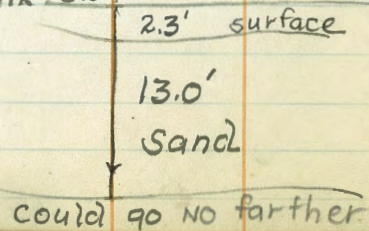 2.3' surface
13.0'
Sand
Could go NO farther